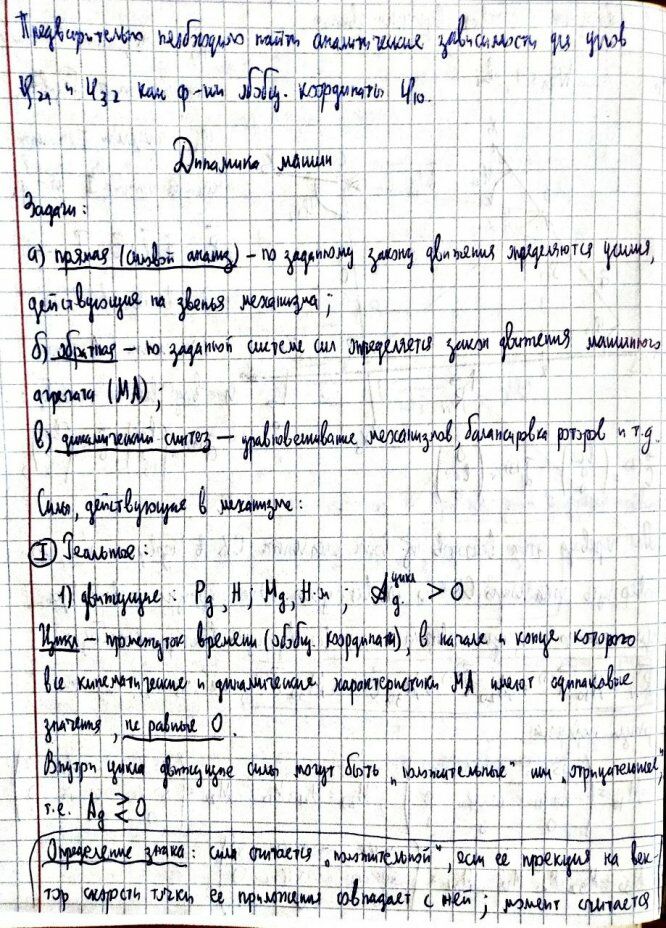 Предварительно необходимо найти аналитические зависимости для углов
φ₂₁ и φ₃₂ как ф-ии обобщ. координаты φ₁₀.
Динамика машин
Задачи:
а) прямая (силовой анализ) – по заданному закону движения определяются усилия,
действующие на звенья механизма;
б) обратная – по заданной системе сил определяется закон движения машинного
агрегата (МА);
в) динамический синтез – уравновешивание механизмов, балансировка роторов и т.д.
Силы, действующие в механизме:
I Реальное:
1) движущие: Pд, Н; Mд, Н·м; Aд.цикл > 0
Цикл – промежуток времени (обобщ. координаты), в начале и конце которого
все кинематические и динамические характеристики МА имеют одинаковые
значения, не равные 0.
Внутри цикла движущие силы могут быть „положительные" или „отрицательные",
т.е. Aд ≷ 0
Определение знака: сила считается „положительной", если её проекция на век-
тор скорости точки её приложения совпадает с ней; момент считается